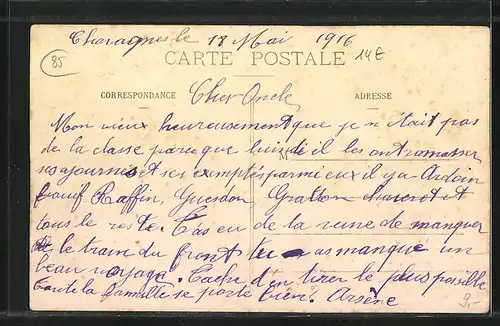 Chavagnes le 18 Mai 1916
85
CARTE POSTALE 14E
CORRESPONDANCE Cher Oncle ADRESSE
Mon vieux heureusement que je n'etait pas
de la classe parce que lundi il les ont ramasser
ses ajournés et ses exemptés parmi eux il y a Ardoin
Raffin, Guesdon, et
tous le reste. Tas eu de la veine de manquer
le train du front tu as manqué un
beau voyage. Tache d'en tirer le plus possible
toute la famille se porte bien. Arsène
9.-